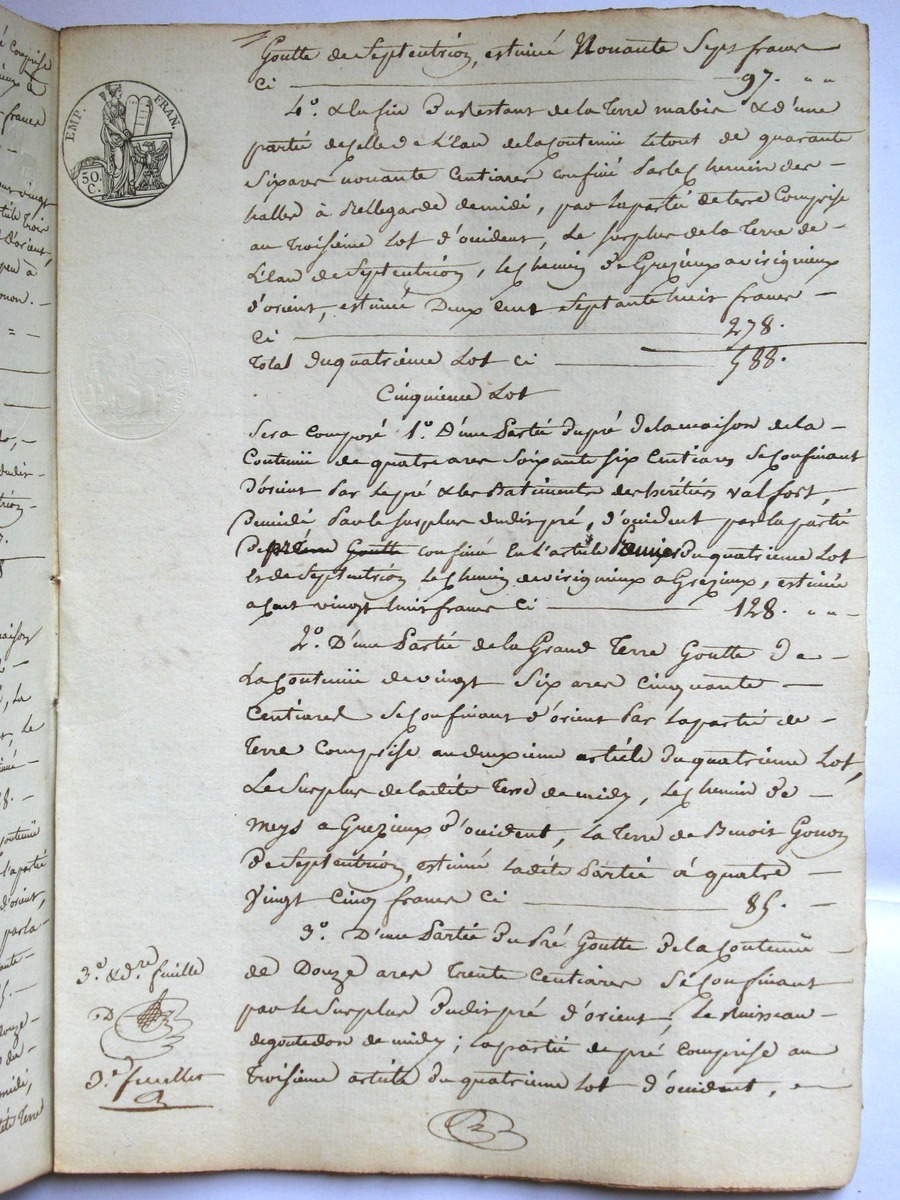 EMP. FRAN.
50.
C.
Goutte de Septentrion, estimé Nonante Sept francs
Ci 97. " "
4.º & la fin Du restant de la Terre mabie & d'une
partie de celle de L'Etau de la Contenüe Le tout de quarante
Six ares nonante Centiares confiné Par le Chemin des
halles à Bellegarde de midi, par la partie de terre Comprise
au Troisième Lot d'occident, Le surplus de la Terre de
L'étau de Septentrion, le chemin De Grezieux a virigneux
d'orient, estimée Deux cent Septante huit francs
Ci 278.
Total Du quatrième Lot Ci 588.
Cinquieme Lot
Sera Composé 1.º D'une Partie du pré de la maison de la
Contenüe de quatre ares Soixante Six Centiares Se Confinant
D'orient Par Le pré & les Batiments des héritiers valfort,
De midi Par le surplus dudit pré, d'occident par la partie
De Goutte confiné En L'article Premier du quatrieme Lot
Et de Septentrion Le Chemin de virigneux a Grézieux, estimée
a Cent vingt huit francs Ci 128. " "
2.º D'une Partie de la Grand Terre Goutte De
La Contenüe de vingt Six ares Cinquante
Centiares Se Confinant d'orient Par La partie de
Terre Comprise au deuxieme article Du quatrième Lot,
Le Surplus de ladite Terre de midy, le Chemin De
Meys a Grezieux D'occident, La Terre de Benoit Gonon
De Septentrion, estimé Ladite Partie à quatre
Vingt Cinq francs Ci 85.
3.º D'une Partie Du Pré Goutte De la Contenüe
de Douze ares Trente Centiares Se Confinant
par le Surplus Dudit pré d'orient, Le Ruisseau
de midy; la partie de pré Comprise au
Troisième article Du quatrième Lot D'occident,
3.º & d.re feuille
3.e feuillet